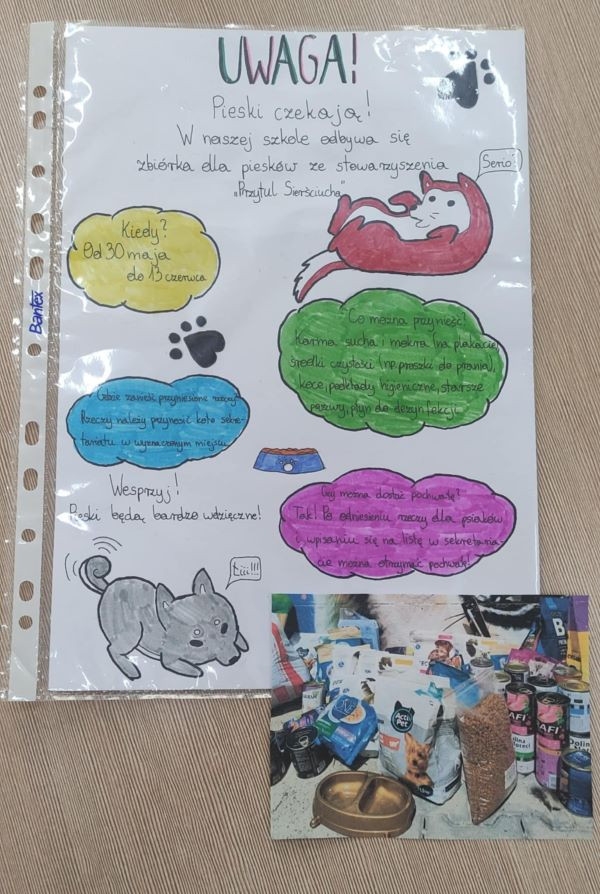 UWAGA!
Pieski czekają!
W naszej szkole odbywa się
zbiórka dla piesków ze stowarzyszenia
„Przytul Sierściucha"
Serio?
Kiedy?
Od 30 maja
do 13 czerwca
Co można przynieść?
Karma sucha i mokra (na plakacie)
środki czystości (np. proszki do prania),
koce, podkłady higieniczne, starsze
płyn do dezynfekcji
Gdzie zanieść przyniesione rzeczy?
Rzeczy należy przynosić koło sekre-
tariatu w wyznaczonym miejscu
Wesprzyj!
Pieski będą bardzo wdzięczne!
Czy można dostać pochwałę?
Tak! Po odniesieniu rzeczy dla psiaków
i wpisaniu się na listę w sekretaria-
cie można otrzymać pochwałę!
Łiii!!!
Bantex
Acti
Pet
RAFI
Dolina